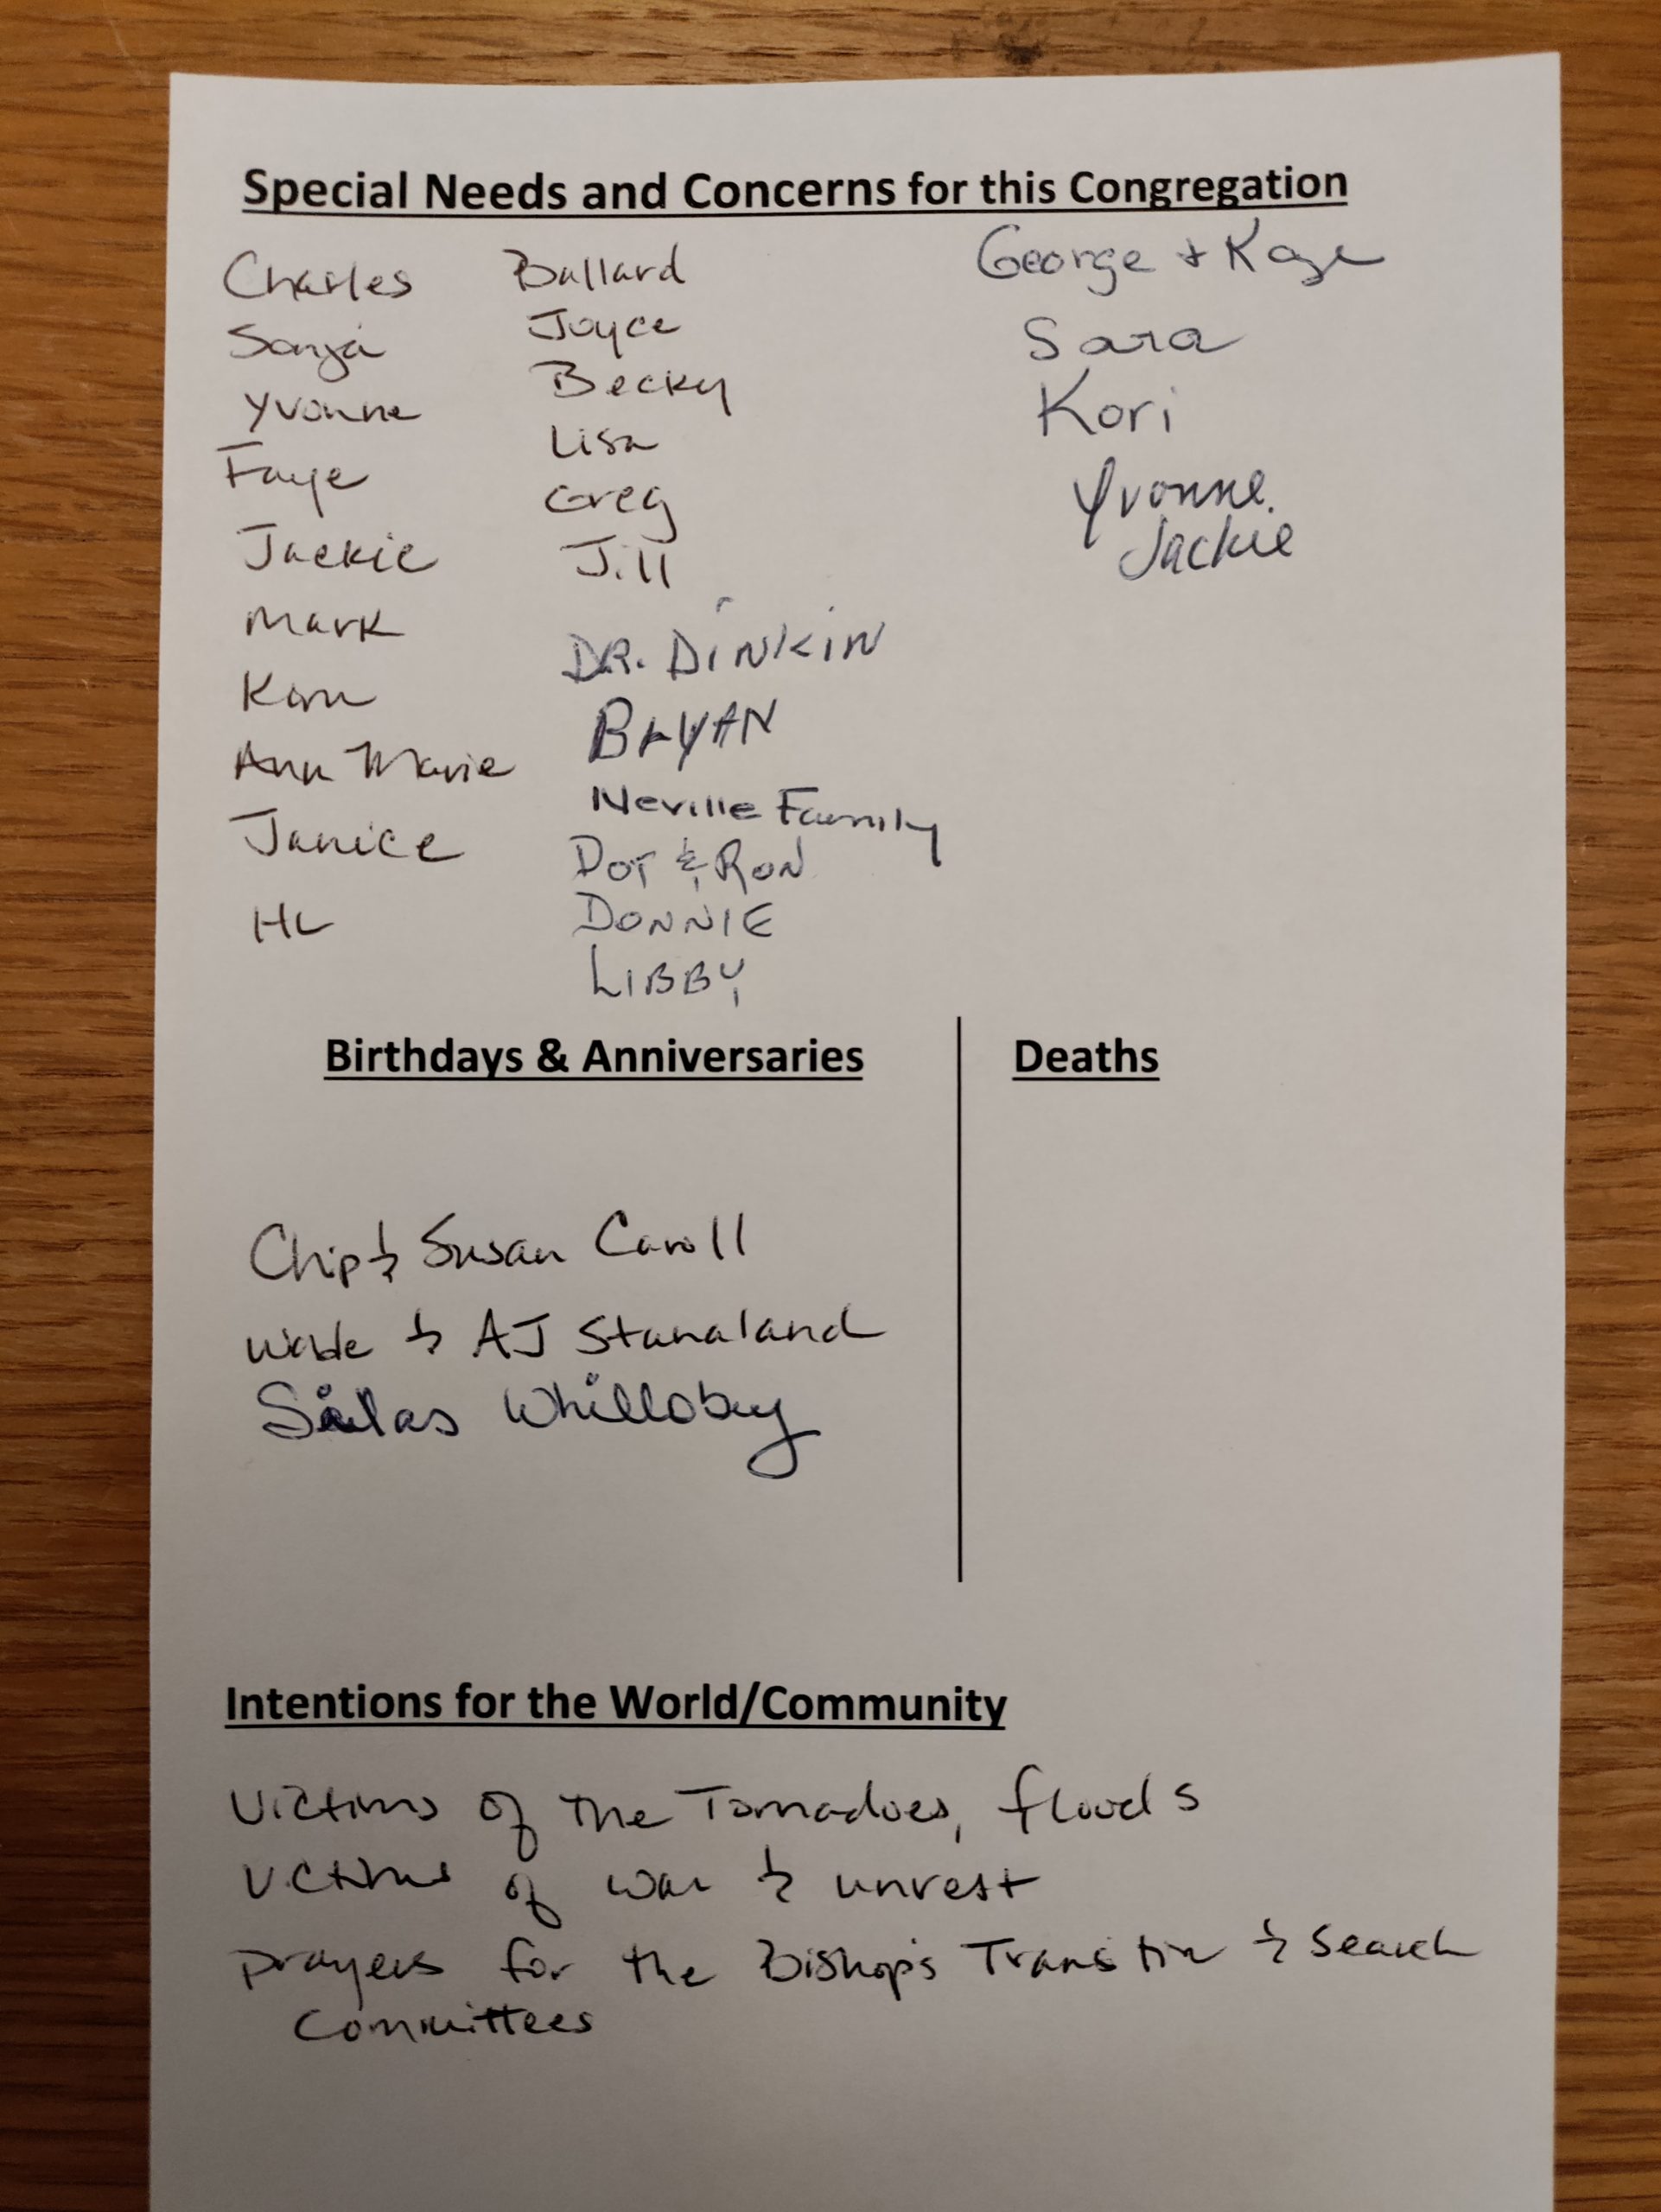 Special Needs and Concerns for this Congregation
Charles
Sonja
Yvonne
Faye
Jackie
Mark
Ann Marie
Janice
HL
Ballard
Joyce
Becky
Lisa
Greg
Jill
DR. DINKIN
BRYAN
Neville Family
DOT & RON
DONNIE
LIBBY
George + Kaye
Sara
Kori
Yvonne
Jackie
Birthdays & Anniversaries
Chip & Susan Caroll
Wade & AJ Stanaland
Silas Whilloby
Deaths
Intentions for the World/Community
Victims of the Tornadoes, floods
Victims of war & unrest
prayers for the Bishop's Transition & Search
Committees